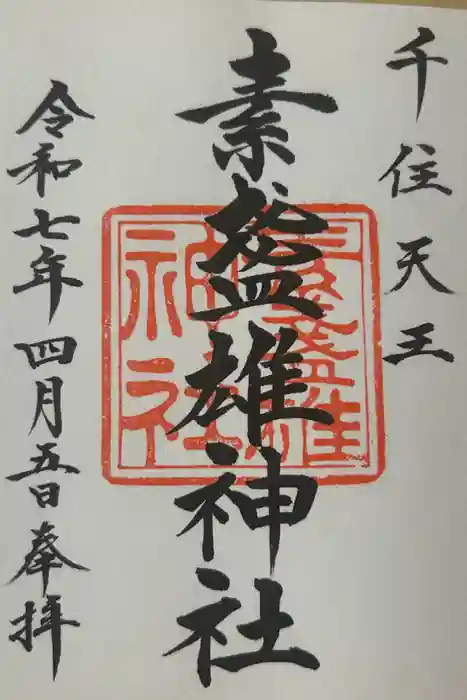 千住天王
素盞雄神社
令和七年四月五日奉拝
素盞雄
神社